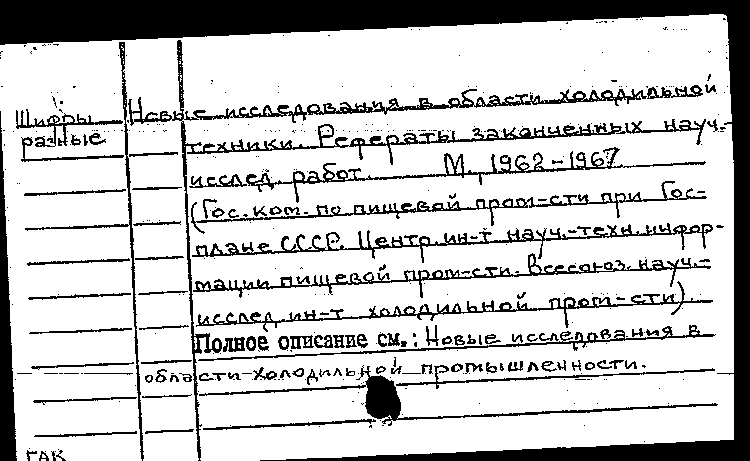 Шифры разные
Новые исследования в области холодильной
техники. Рефераты законченных науч.-
исслед. работ. М., 1962-1967
(Гос. ком. по пищевой пром-сти при Гос-
плане СССР. Центр. ин-т науч.-техн. инфор-
мации пищевой пром-сти. Всесоюз. науч.-
исслед. ин-т холодильной пром-сти).
Полное описание см.: Новые исследования в
области холодильной промышленности.
ГАК